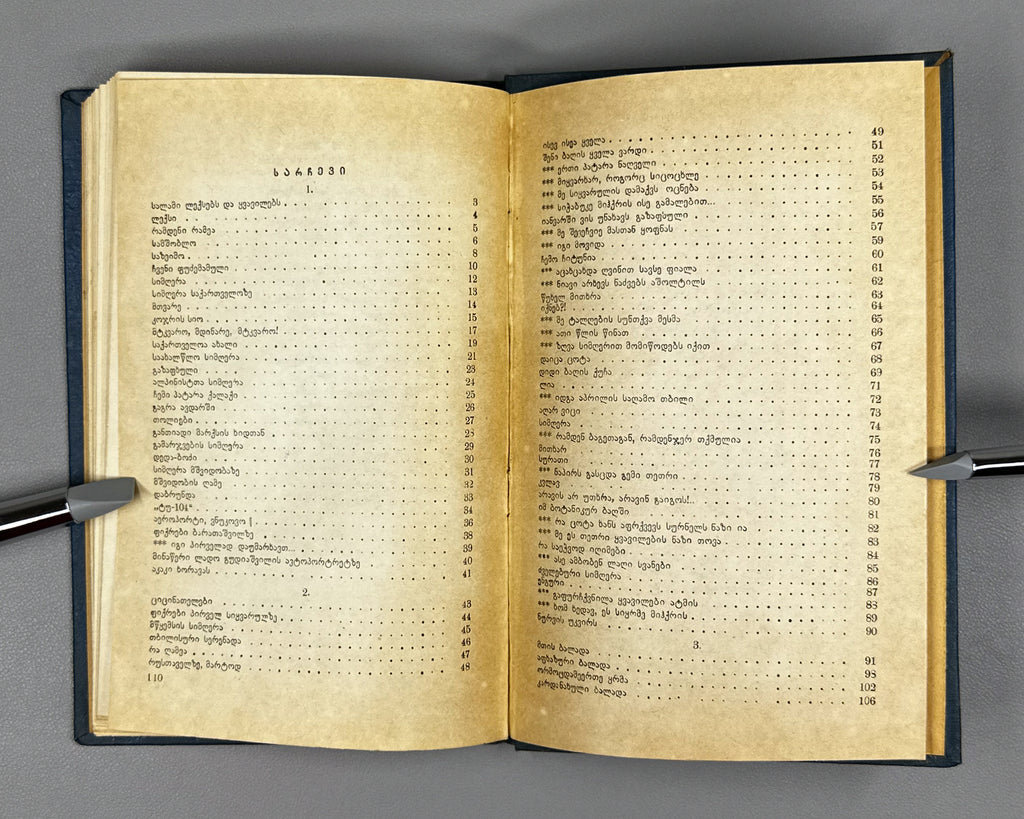 სარჩევი
1.
სალამი ლექსებს და ყვავილებს . . . 3
ლექსი . . . 4
რამდენი რამეა . . . 5
სამშობლო . . . 6
საზეიმო . . . 8
ჩვენი ფუძემამული . . . 10
სიმღერა . . . 12
სიმღერა საქართველოზე . . . 13
მთვარე . . . 14
კოჯრის სიო . . . 15
მტკვარო, მდინარე, მტკვარო! . . . 17
საქართველოა ახალი . . . 19
საახალწლო სიმღერა . . . 21
გაზაფხული . . . 23
ალპინისტთა სიმღერა . . . 24
ჩემი პატარა ქალაქი . . . 25
გაგრა ავდარში . . . 26
თოლიები . . . 27
განთიადი მარქსის ხიდთან . . . 28
გამარჯვების სიმღერა . . . 29
დედა-ბოძი . . . 30
სიმღერა მშვიდობაზე . . . 31
მშვიდობის ღამე . . . 32
დაბრუნდა . . . 33
„ტუ-104“ . . . 34
აეროპორტი, ვნუკოვო . . . 36
ფიქრები ბარათაშვილზე . . . 38
*** იგი პირველად დაუმარხავთ... . . . 39
მინაწერი ლადო გუდიაშვილის ავტოპორტრეტზე . . . 40
აკაკი ხორავას . . . 41
2.
ციცინათელები . . . 43
ფიქრები პირველ სიყვარულზე . . . 44
მწყემსის სიმღერა . . . 45
თბილისური სერენადა . . . 46
რა ღამეა . . . 47
რუსთაველზე, მარტოდ . . . 48
110
ისევ ისეა ყველა . . . 49
შენი ბაღის ყველა ვარდი . . . 51
*** ერთი პატარა ნაღველი . . . 52
*** მიყვარხარ, როგორც სიცოცხლე . . . 53
*** მე სიყვარულის დამაქვს ოცნება . . . 54
*** სიჭაბუკე მიჰქრის ისე გამალებით... . . . 55
იანვარში ვის უნახავს გაზაფხული . . . 56
*** მე შევეჩვიე მასთან ყოფნას . . . 57
*** იგი მოვიდა . . . 59
ჩემო ჩიტუნია . . . 60
*** აცახცახდა ღვინით სავსე ფიალა . . . 61
*** ნიავი არხევს ნაძვებს აშოლტილს . . . 62
წუხელ მითხრა . . . 63
იქნებ?! . . . 64
*** მე ტალღების სუნთქვა მესმა . . . 65
*** ათი წლის წინათ . . . 66
*** ზღვა სიმღერით მომიწოდებს იქით . . . 67
დაიცა ცოტა . . . 68
დიდი ბაღის ქუჩა . . . 69
ლია . . . 71
*** იდგა აპრილის საღამო თბილი . . . 72
აღარ ვიცი . . . 73
სიმღერა . . . 74
*** რამდენ ბაგეთაგან, რამდენჯერ თქმულია . . . 75
მითხარ . . . 76
სურათი . . . 77
*** ნაპირს გასცდა გემი თეთრი . . . 78
კვლავ . . . 79
არავის არ უთხრა, არავინ გაიგოს!.. . . . 80
იმ ბოტანიკურ ბაღში . . . 81
*** რა ცოტა ხანს აფრქვევს სურნელს ნაზი ია . . . 82
*** მე ეს თეთრი ყვავილების ნაზი თოვა . . . 83
რა საეჭვოდ იღიმები . . . 84
*** ასე ამბობენ ლაღი სვანები . . . 85
ძველებური სიმღერა . . . 86
ენგური . . . 87
*** გაფურჩქვნილა ყვავილები ატმის . . . 88
*** ხომ ხედავ, ეს სიყრმე მიჰქრის . . . 89
ნურვის უკვირს . . . 90
3.
მთის ბალადა . . . 91
აფხაზური ბალადა . . . 98
ორმოცდამეერთე ყრმა . . . 102
კარდანახული ბალადა . . . 106